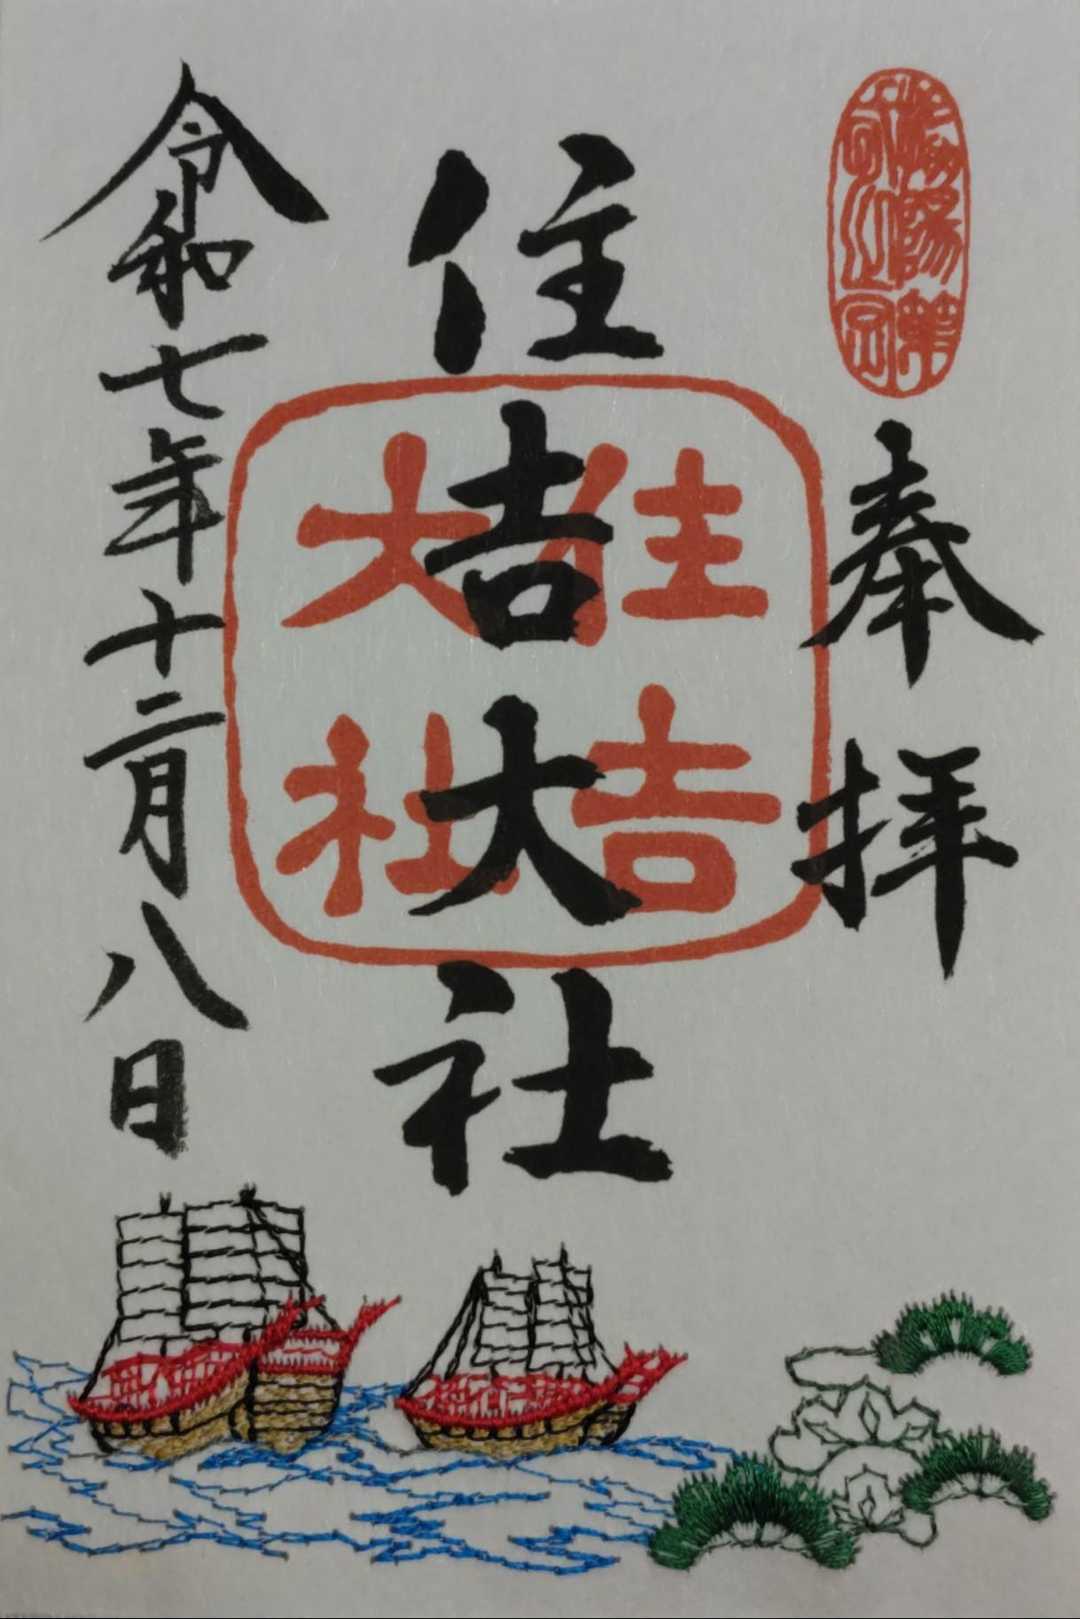 奉拝
住吉大社
住吉
大社
令和七年十二月八日